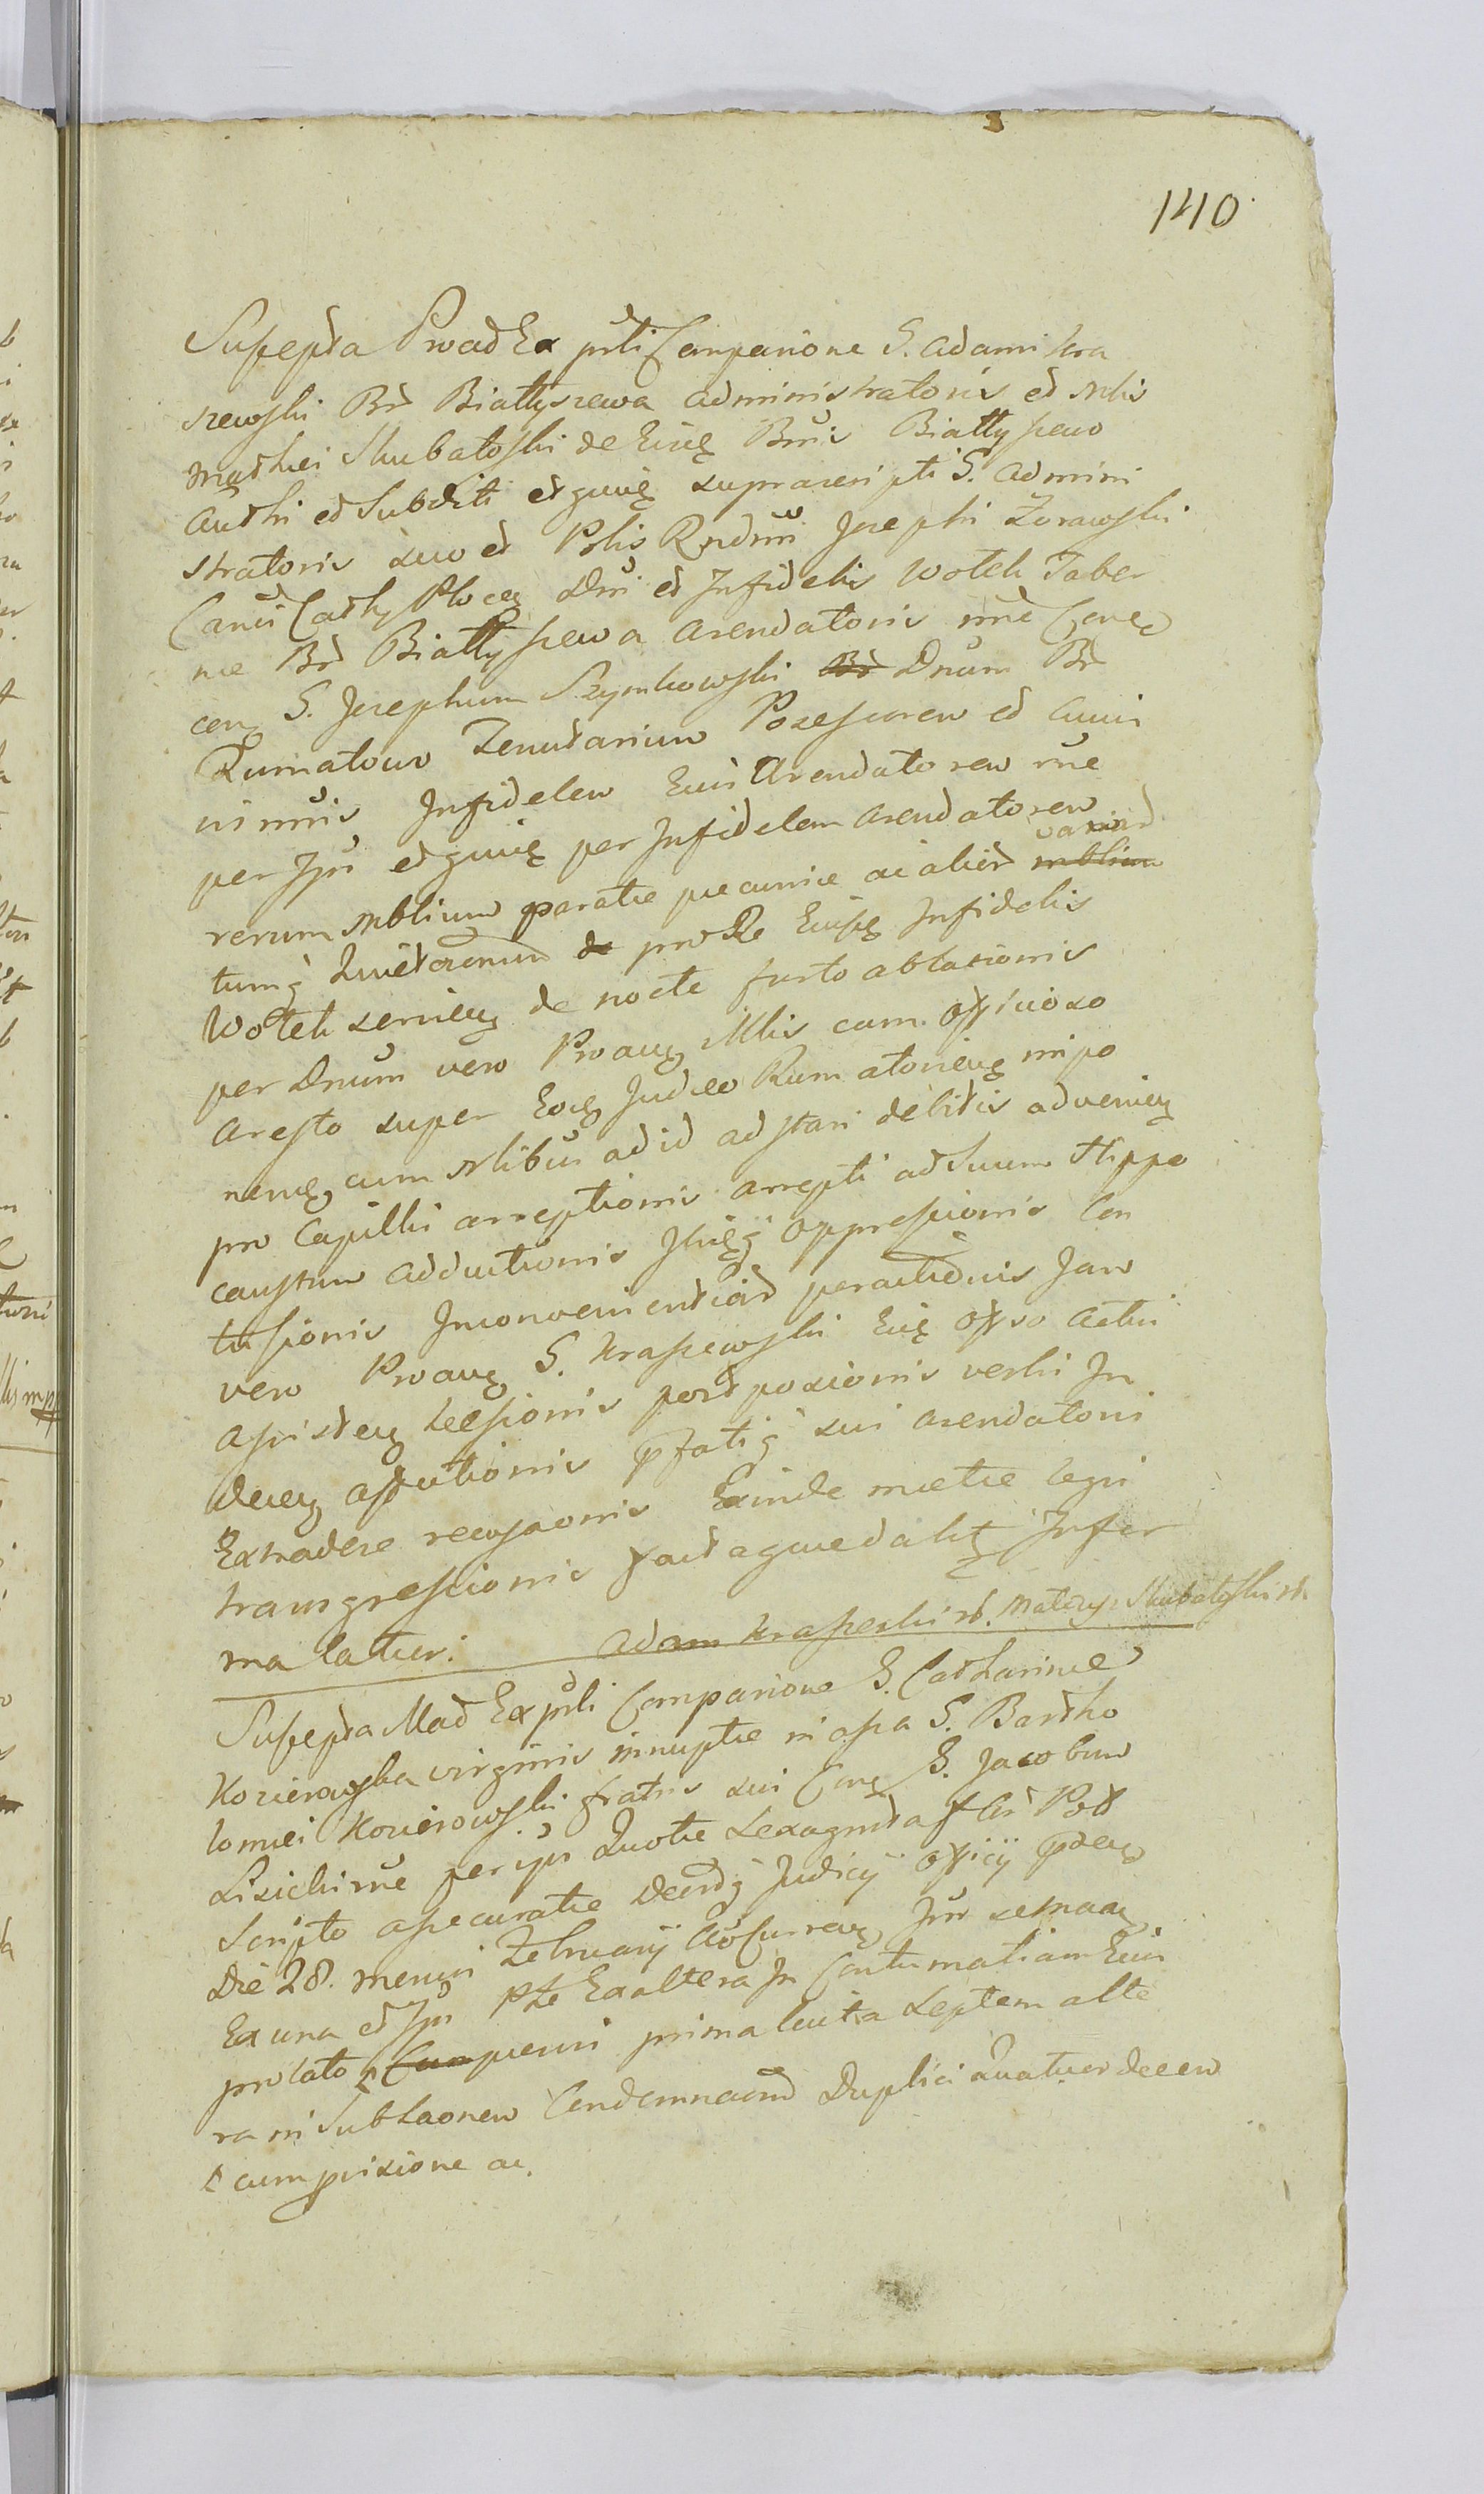 140
Susepta Proad Ex prsti Comparione G. Adami Kra
szewski Br Białłyszewa Administratoris et Nlis
Mathei Skubatoski de Eius Bnis Białłyszewo
Authi et Subditi et quie suprascripti G. Admini
stratoris suo et Pslis Rndmi Josephi Żórawski
Canci Cathy Ploceg Dni et Infidelis Wolek Taber
nae Br Białłyszewa Arendatoris nne
ceng G. Josephum Szymkowski Br Dnum Br
Rumatowo Tenutarium Posessorem et Cuius
nimnis Infidelem Eius Arendatorem rne
per Ipsi et quie per Infidelem Arendatorem
rerum Mblium paratae pecuniae ac alior mblium variar
tumq de pro Re Eiusq Infidelis
Wolek servieng de nocte furto ablationis
per Dnum vero Proaug Nlis cum Offcioso
Aresto super Eoq Judeo Rumatovieng impo
neneg cum Nlibus ad id adstari debitis advenieng
pro Capillis arreptionis arrepti ad Suum Hippo
caustum adductionis Ibieq oppressionis Con
tusionis Inconvenientiar peractionis Jaro
vero Proaug G. Kraszewski Eiq Offso Actui
Asisteng leesionis postposionis verbi In
deceg assertionis pfatiq sui Arendatoris
Extradere recusaonis Exinde metae legis
transgressionis factaque dalit Infor
ma latier: Adam Kraszeski rk. Mateusz Skubatoski rk.
Susepta Mad Ex prsti Comparione G. Catharinae
Kozierowska virginis innuptae in assa G. Bartho
lomei Kozierowski fratris sui Cong G. Jacobum
Lisicki rne per ips Quotae sexaginta flor Pol
Scripto assecuratae Decrdq Judicij Officij pseng
Die 28. Mensis Februarij Ao Curreng Inr semaag
Ex una et Ips pte Ex altera In Contumatiam Eius
prolato ^ Cum pseni prima lucta Septem alte
ra in Sublaonem Condemnaond Duplici Quatuordecem
^ cum prisione ac.